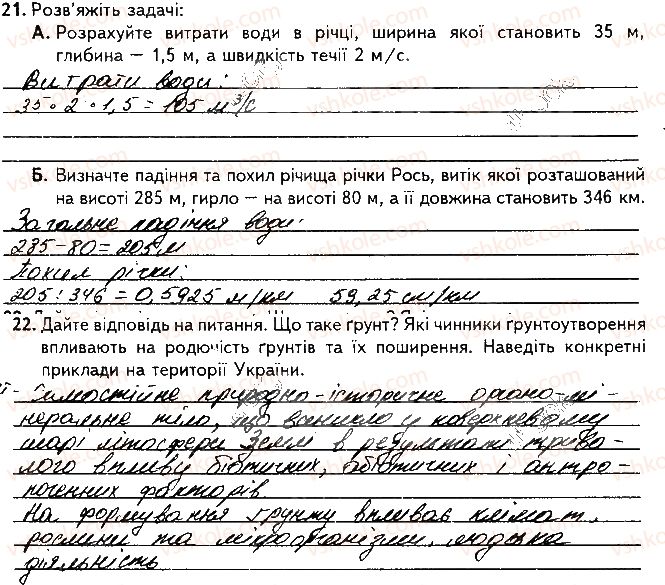 21. Розв'яжіть задачі:
А. Розрахуйте витрати води в річці, ширина якої становить 35 м,
глибина — 1,5 м, а швидкість течії 2 м/с.
Витрати води:
35 · 2 · 1,5 = 105 м³/с
Б. Визначте падіння та похил річища річки Рось, витік якої розташований
на висоті 285 м, гирло — на висоті 80 м, а її довжина становить 346 км.
Загальне падіння води:
285-80=205м
Похил річки:
205:346=0,5925 м/км 59,25 см/км
22. Дайте відповідь на питання. Що таке ґрунт? Які чинники ґрунтоутворення
впливають на родючість ґрунтів та їх поширення. Наведіть конкретні
приклади на території України.
Самостійне природно-історичне органо-мі-
неральне тіло, що виникло у поверхневому
шарі літосфери Землі в результаті трива-
лого впливу біотичних, абіотичних і антро-
погенних факторів
На формування ґрунту впливає клімат,
рослини та мікроорганізми, людська
діяльність
vshkole.com